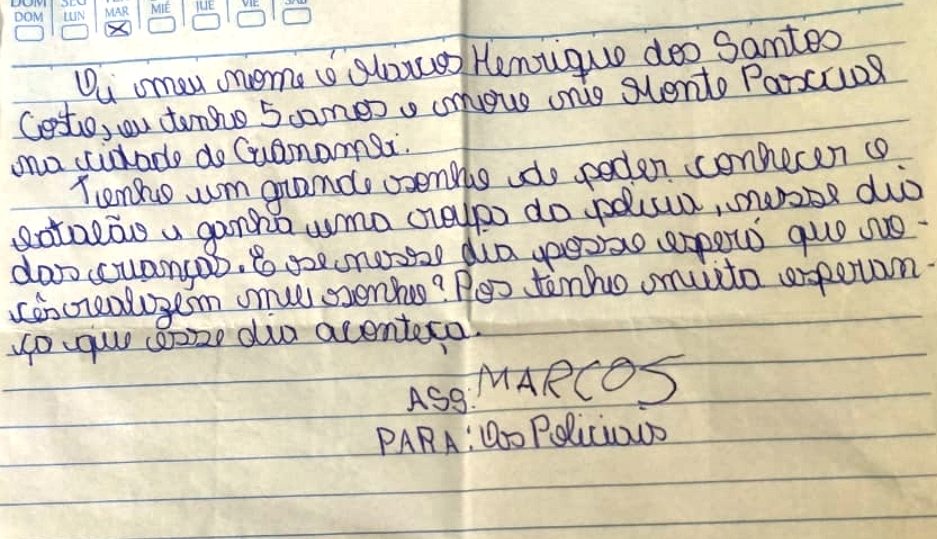 DOM SEG TER QUA QUI SEX SAB
DOM LUN MAR MIÉ JUE VIE SÁB
Oi meu nome é Marcos Henrique dos Santos
Costa, eu tenho 5 anos e moro no Monte Pascoal
na cidade de Guanambi.
Tenho um grande sonho de poder conhecer o
batalão e ganha uma roupa da polícia, nesse dia
das crianças. E se nesse dia posso esperó que vo-
cês realizem meu sonho? Pos tenho muita esperan-
ça que esse dia aconteça.
ASS: MARCOS
PARA: Os Policiais